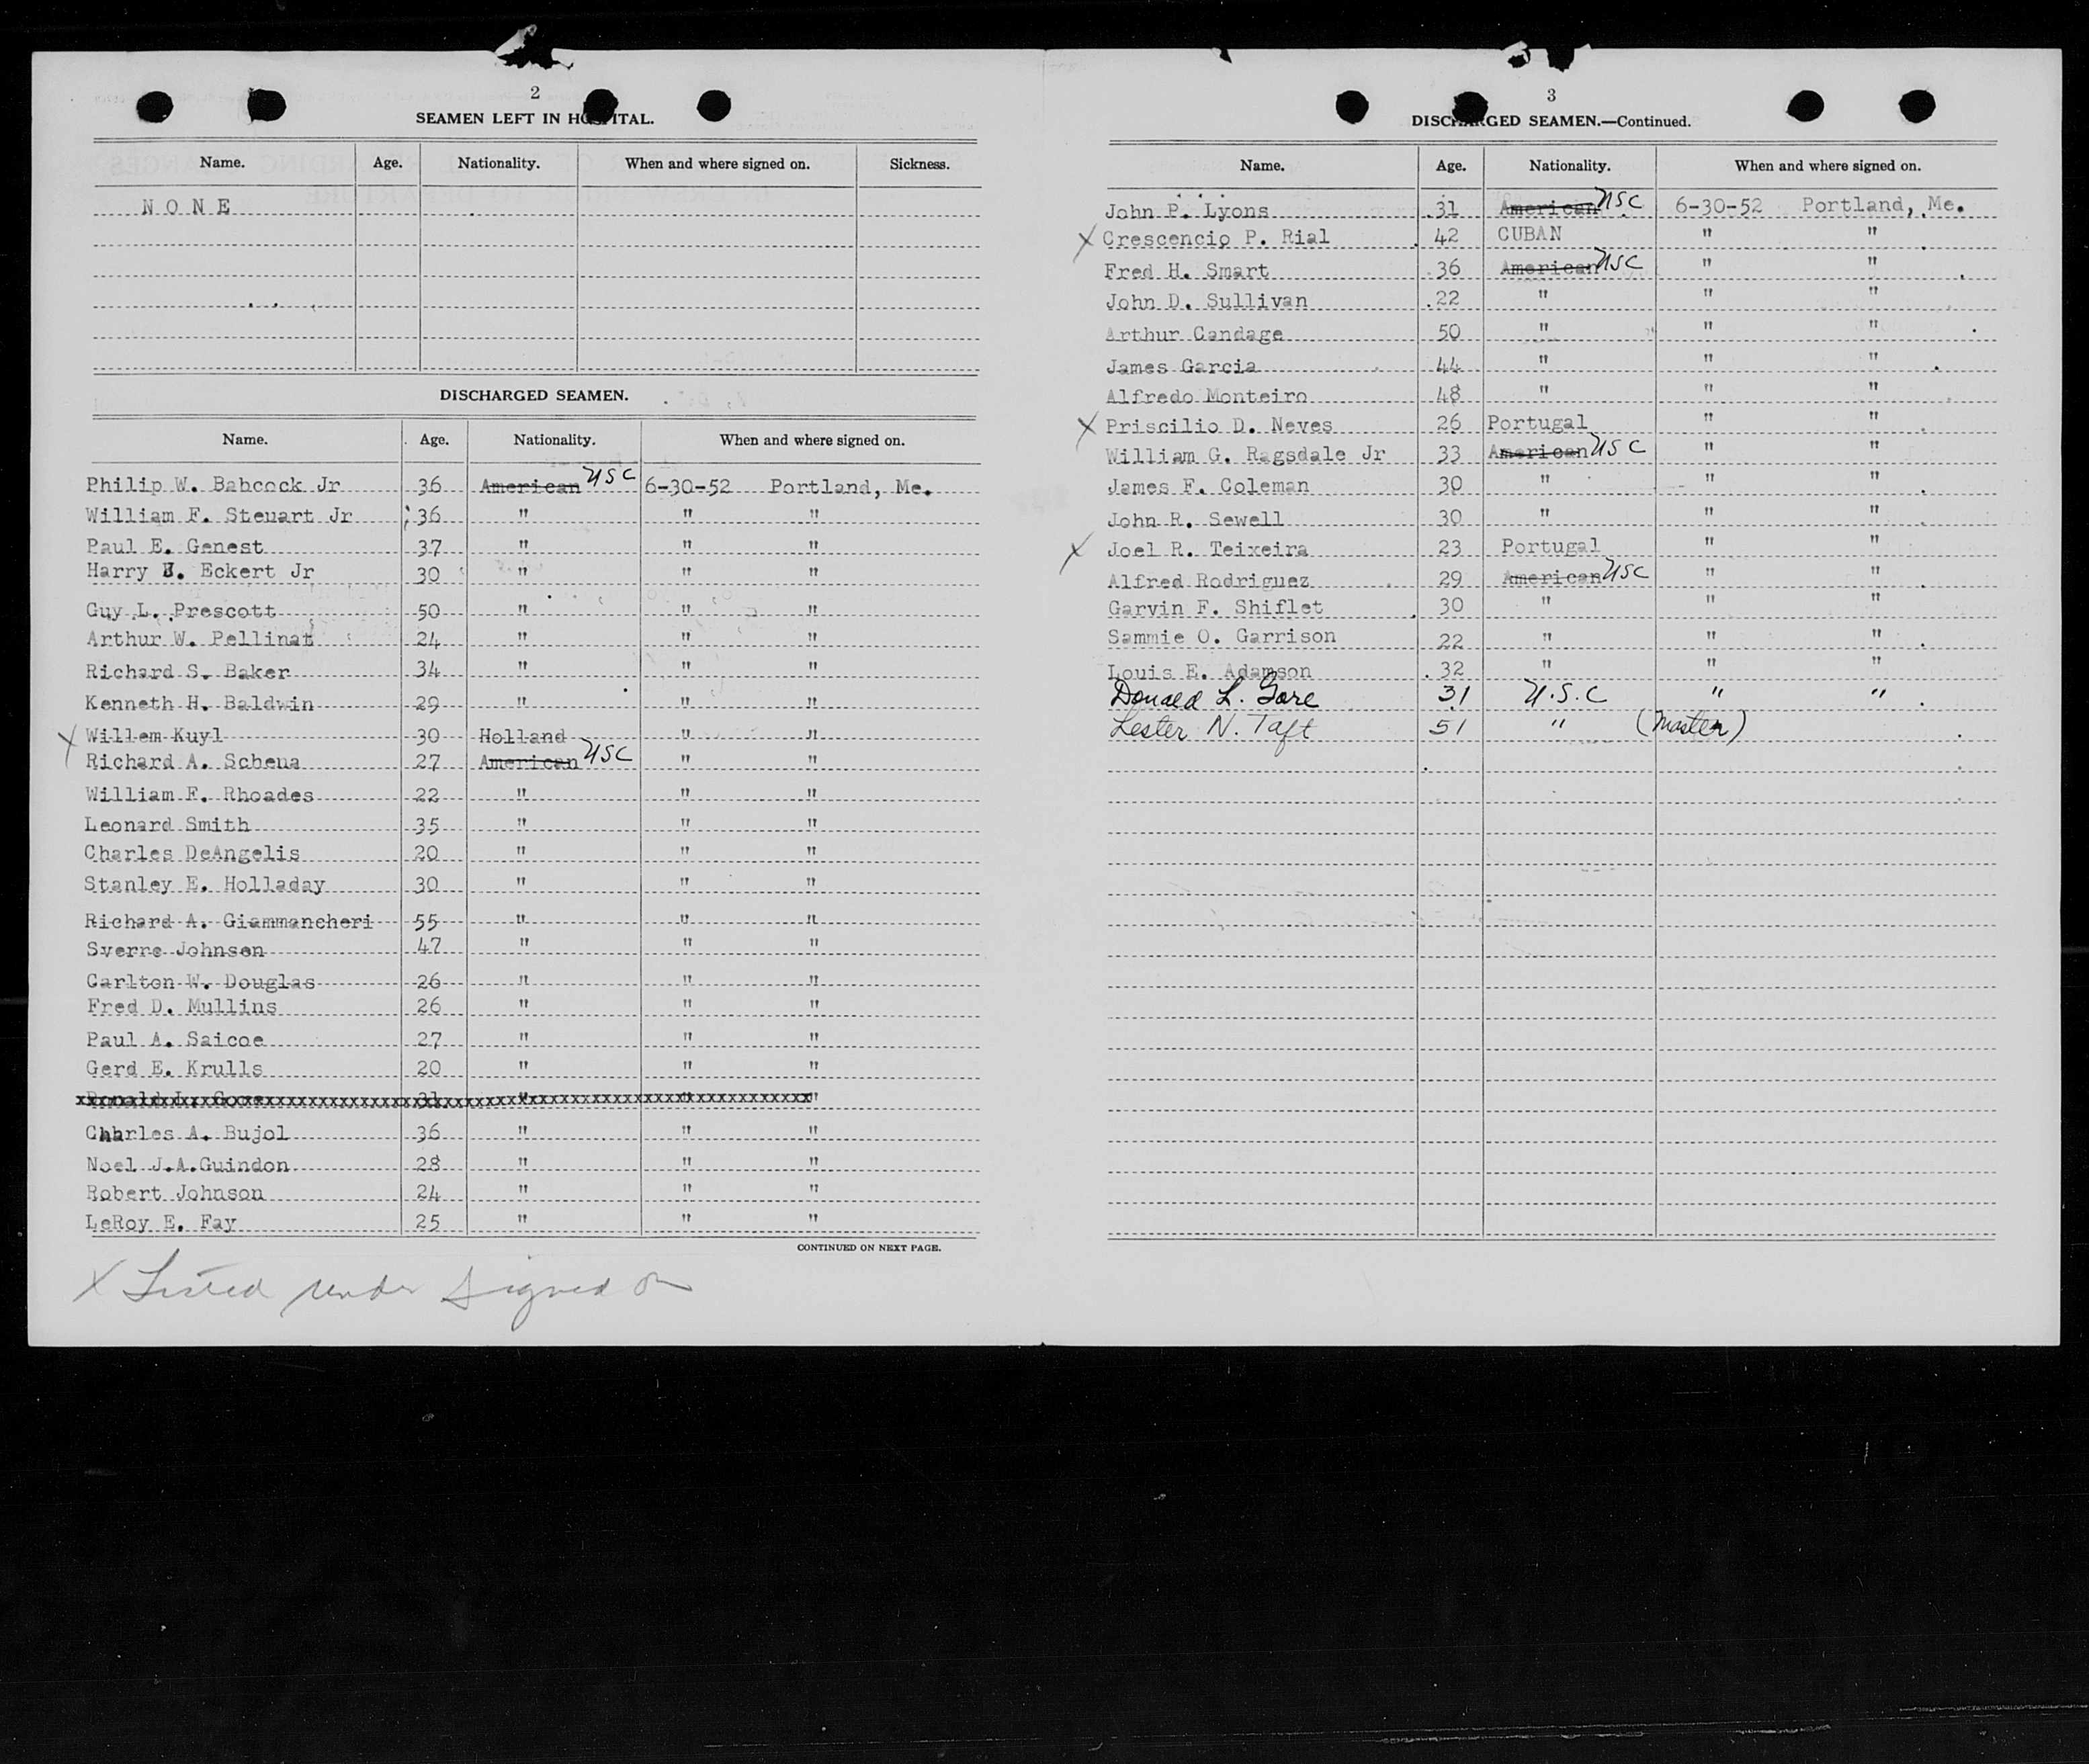 2
SEAMEN LEFT IN HOSPITAL.
Name. Age. Nationality. When and where signed on. Sickness.
NONE
DISCHARGED SEAMEN.
Name. Age. Nationality. When and where signed on.
Philip W. Babcock Jr 36 American USC 6-30-52 Portland, Me.
William F. Steuart Jr 36 " " "
Paul E. Genest 37 " " "
Harry J. Eckert Jr 30 " " "
Guy L. Prescott 50 " " "
Arthur W. Pellinat 24 " " "
Richard S. Baker 34 " " "
Kenneth H. Baldwin 29 " " "
X Willem Kuyl 30 Holland " "
Richard A. Scheua 27 American USC " "
William F. Rhoades 22 " " "
Leonard Smith 35 " " "
Charles DeAngelis 20 " " "
Stanley E. Holladay 30 " " "
Richard A. Giammancheri 55 " " "
Sverre Johnsen 47 " " "
Carlton W. Douglas 26 " " "
Fred D. Mullins 26 " " "
Paul A. Saicoe 27 " " "
Gerd E. Krulls 20 " " "
Donald L. Gore 31 " " "
Charles A. Bujol 36 " " "
Noel J.A.Guindon 28 " " "
Robert Johnson 24 " " "
LeRoy E. Fay 25 " " "
CONTINUED ON NEXT PAGE.
X Listed under signed on
3
DISCHARGED SEAMEN.—Continued.
Name. Age. Nationality. When and where signed on.
John P. Lyons 31 American USC 6-30-52 Portland, Me.
X Crescencio P. Rial 42 CUBAN " "
Fred H. Smart 36 American USC " "
John D. Sullivan 22 " " "
Arthur Candage 50 " " "
James Garcia 44 " " "
Alfredo Monteiro 48 " " "
X Priscilio D. Neves 26 Portugal " "
William G. Ragsdale Jr 33 American USC " "
James F. Coleman 30 " " "
John R. Sewell 30 " " "
X Joel R. Teixeira 23 Portugal " "
Alfred Rodriguez 29 American USC " "
Garvin F. Shiflet 30 " " "
Sammie O. Garrison 22 " " "
Louis E. Adamson 32 " " "
Donald L. Gore 31 U.S.C " "
Lester N. Taft 51 " (Master)